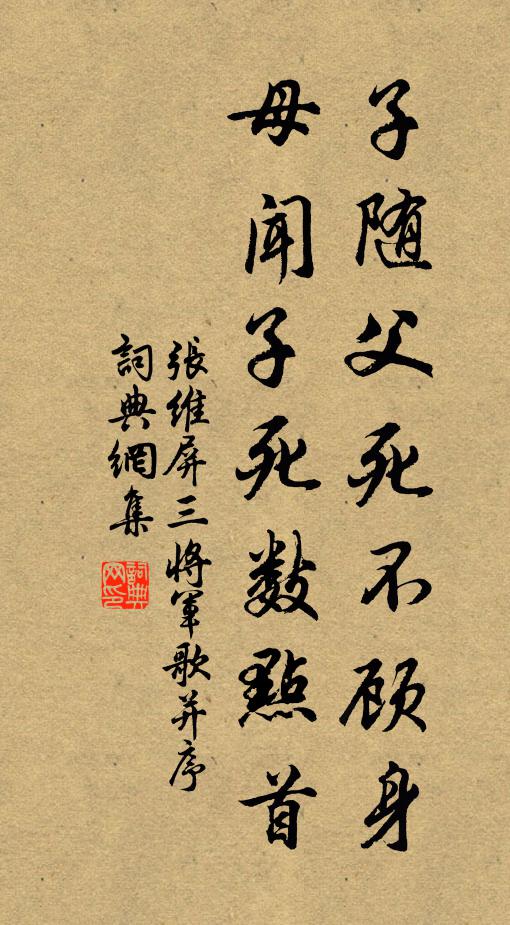 子随父死不顾身
母闻子死数點首
張維屏三將軍歌并序
詞典網集
詞典网印